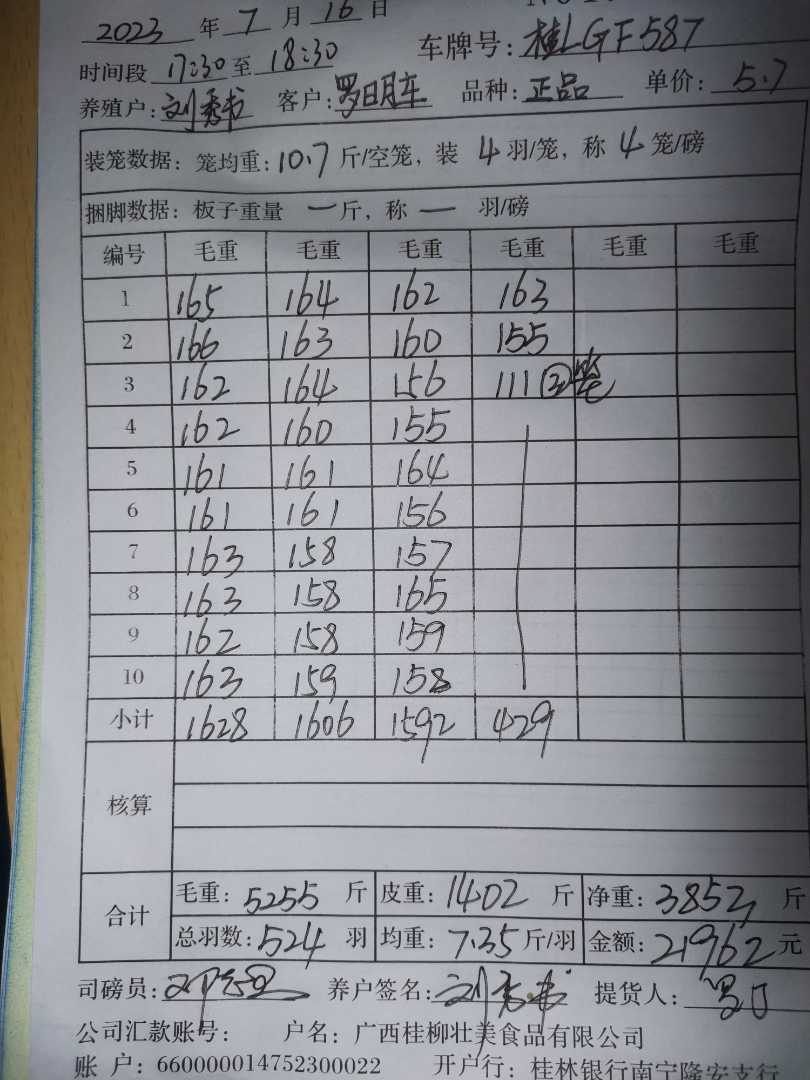 2023 年 7 月 16 日
时间段 17:30 至 18:30 车牌号: 桂LGF587
养殖户: 刘秀书 客户: 罗日月车 品种: 正品 单价: 5.7
装笼数据: 笼均重: 10.7 斤/空笼, 装 4 羽/笼, 称 4 笼/磅
捆脚数据: 板子重量 一 斤, 称 一 羽/磅
编号 毛重 毛重 毛重 毛重 毛重 毛重
1 165 164 162 163
2 166 163 160 155
3 162 164 156 111 ②笼
4 162 160 155
5 161 161 164
6 161 161 156
7 163 158 157
8 163 158 165
9 162 158 159
10 163 159 158
小计 1628 1606 1592 429
核算
合计 毛重: 5255 斤 皮重: 1402 斤 净重: 3852 斤
总羽数: 524 羽 均重: 7.35 斤/羽 金额: 21962 元
司磅员: 养户签名: 刘秀书 提货人: 罗日
公司汇款账号: 户名: 广西桂柳壮美食品有限公司
账 户: 660000014752300022 开户行: 桂林银行南宁隆安支行